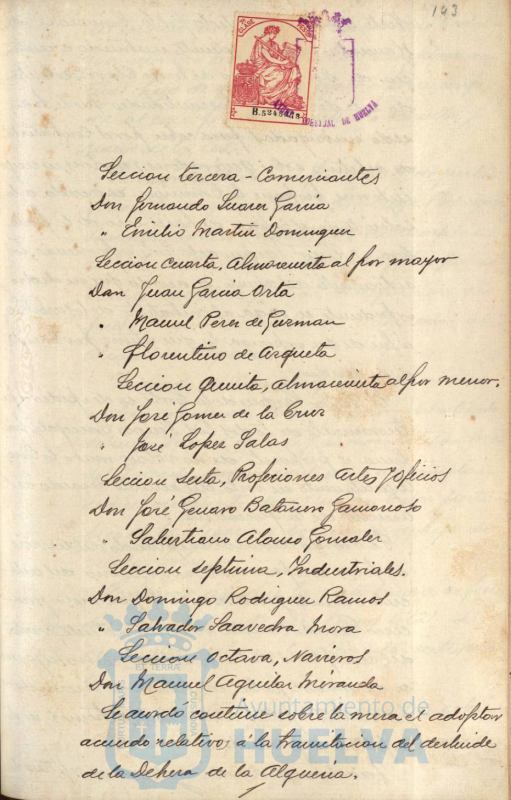 143
B.5248448
DE HUELVA
Seccion tercera - Comerciantes
Don Fernando Suarez Garcia
" Emilio Martin Dominguez
Seccion cuarta, Almacenista al por mayor
Don Juan Garcia Orta
" Manuel Perez de Guzman
" Florentino de Azqueta
Seccion quinta, Almacenista al por menor.
Don José Gomez de la Cruz
" José Lopez Salas
Seccion Sesta, Profeciones Artes y Oficios
Don José Genaro Batanero Gamonoso
" Sabertiano Alonso Gonzalez
Seccion septima, Industriales.
Don Domingo Rodriguez Ramos
" Salvador Saavedra Mora
Seccion Octava, Navieros
Don Manuel Aguilar Miranda
Se acordó continue sobre la mesa el adoptar
acuerdo relativo á la tramitacion del deslinde
de la Dehesa de la Alqueria.
Ayuntamiento de
HUELVA